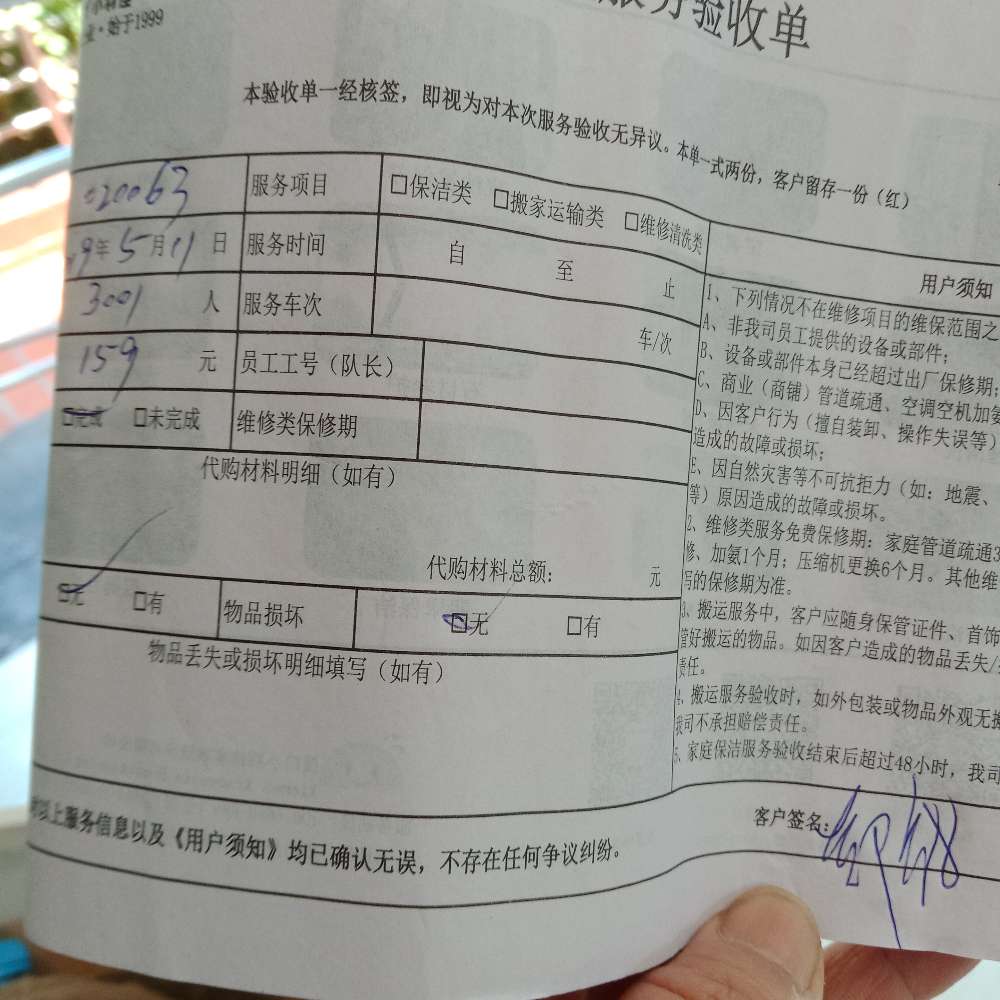 业·始于1999
服务验收单
本验收单一经核签，即视为对本次服务验收无异议。本单一式两份，客户留存一份（红）
20063 服务项目 □保洁类 □搬家运输类 □维修清洗类
9年5月11日 服务时间 自 至 止
3001 人 服务车次 车/次
159 元 员工工号（队长）
□完成 □未完成 维修类保修期
代购材料明细（如有）
代购材料总额： 元
□无 □有 物品损坏 □无 □有
物品丢失或损坏明细填写（如有）
以上服务信息以及《用户须知》均已确认无误，不存在任何争议纠纷。
用户须知
1、下列情况不在维修项目的维保范围之
A、非我司员工提供的设备或部件；
B、设备或部件本身已经超过出厂保修期；
C、商业（商铺）管道疏通、空调空机加氨
D、因客户行为（擅自装卸、操作失误等）
造成的故障或损坏；
E、因自然灾害等不可抗拒力（如：地震、
等）原因造成的故障或损坏。
2、维修类服务免费保修期：家庭管道疏通3
修、加氨1个月；压缩机更换6个月。其他维
写的保修期为准。
3、搬运服务中，客户应随身保管证件、首饰
管好搬运的物品。如因客户造成的物品丢失/
责任。
4、搬运服务验收时，如外包装或物品外观无
我司不承担赔偿责任。
5、家庭保洁服务验收结束后超过48小时，我司
客户签名：